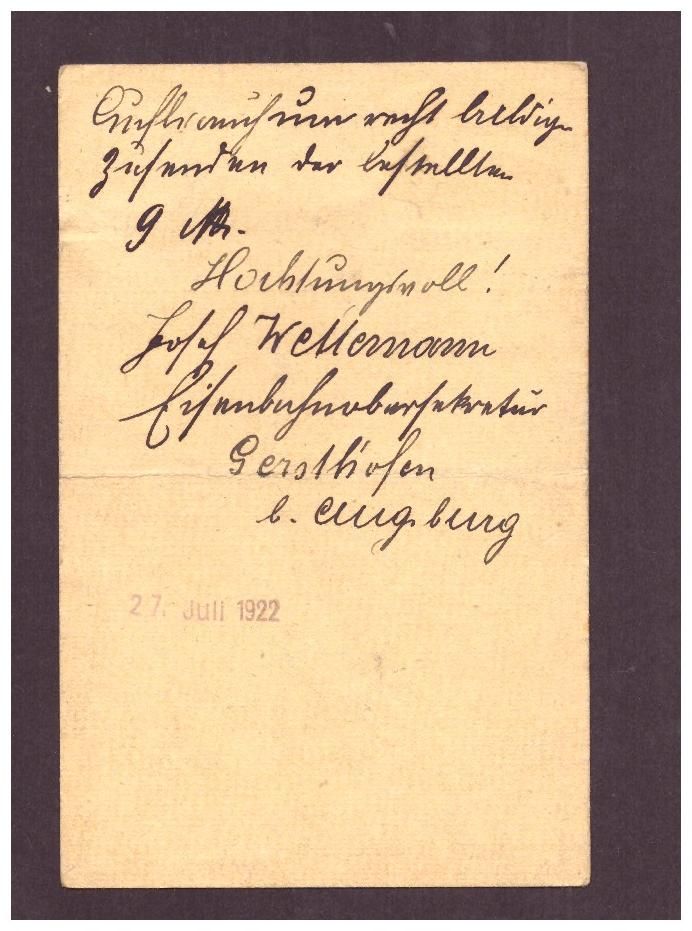 um recht baldige
Zusenden der bestellten
9 M.
Hochtungsvoll!
Josef Wettemann
Eisenbahnobersekretär
Gersthofen
b. Augsburg
27. Juli 1922